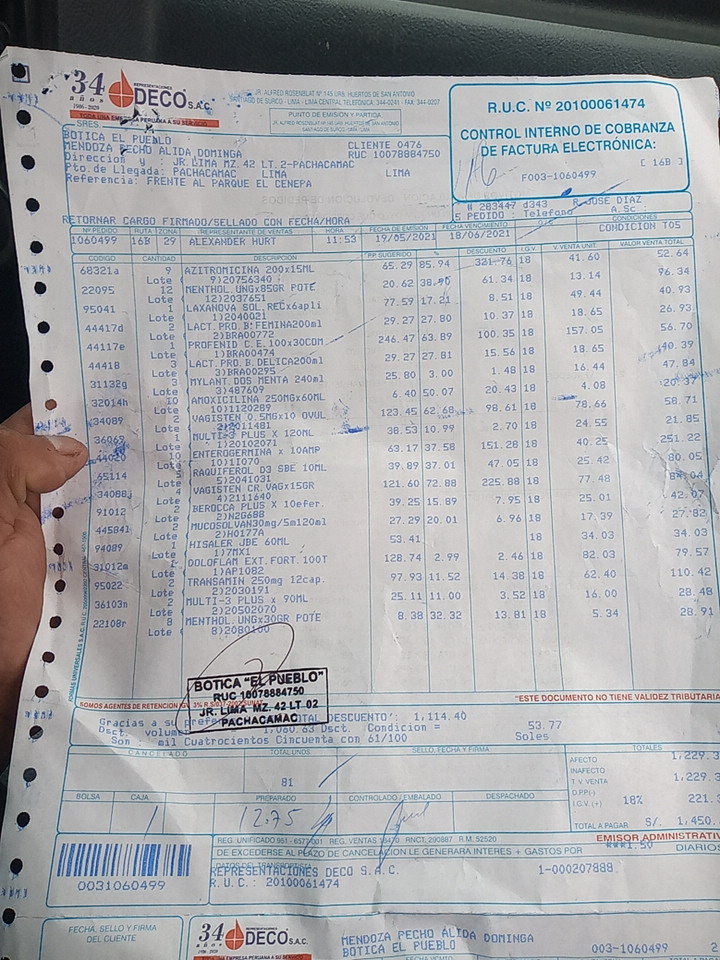 34 años REPRESENTACIONES DECO S.A.C.
1986-2020
TODA UNA EMPRESA PERUANA A SU SERVICIO
JR. ALFRED ROSENBLAT Nº 145 URB. HUERTOS DE SAN ANTONIO
SANTIAGO DE SURCO - LIMA - LIMA CENTRAL TELEFÓNICA: 344-0241 - FAX: 344-0207
PUNTO DE EMISIÓN Y PARTIDA
JR. ALFRED ROSENBLAT Nº 145 URB. HUERTOS DE SAN ANTONIO
SANTIAGO DE SURCO - LIMA - LIMA
R.U.C. Nº 20100061474
CONTROL INTERNO DE COBRANZA
DE FACTURA ELECTRÓNICA:
[ 16B ]
F003-1060499
SRES
BOTICA EL PUEBLO
MENDOZA PECHO ALIDA DOMINGA
CLIENTE 0476
RUC 10078884750
Direccion y : JR.LIMA MZ.42 LT.2-PACHACAMAC
Pto.de Llegada: PACHACAMAC LIMA LIMA
Referencia: FRENTE AL PARQUE EL CENEPA
# 283447 d343 R.JOSE DIAZ
S PEDIDO : Telefono A.Sc :
RETORNAR CARGO FIRMADO/SELLADO CON FECHA/HORA
Nº PEDIDO RUTA ZONA REPRESENTANTE DE VENTAS HORA FECHA DE EMISIÓN FECHA VENCIMIENTO CONDICIONES
1060499 16B 29 ALEXANDER HURT 11:53 19/05/2021 18/06/2021 CONDICION T05
CODIGO CANTIDAD DESCRIPCIÓN P.P. SUGERIDO % DESCUENTO I.G.V. V. VENTA UNIT. VALOR VENTA TOTAL
68321a 9 AZITROMICINA 200x15ML 65.29 85.94 321.76 18 41.60 52.64
Lote ( 9)20756340
22095 12 MENTHOL.UNGx85GR POTE 20.62 38.90 61.34 18 13.14 96.34
Lote ( 12)2037651
95041 1 LAXANOVA SOL.RECx6apli 77.59 17.21 8.51 18 49.44 40.93
Lote ( 1)2040021
44417d 2 LACT.PRO.B:FEMINA200ml 29.27 27.80 10.37 18 18.65 26.93
Lote ( 2)BRA00772
44117e 1 PROFENID C.E.100x30COM 246.47 63.89 100.35 18 157.05 56.70
Lote ( 1)BRA00474
44418 3 LACT.PRO.B.DELICA200ml 29.27 27.81 15.56 18 18.65 40.39
Lote ( 3)BRA00295
31132g 3 MYLANT.DOS MENTA 240ml 25.80 3.00 1.48 18 16.44 47.84
Lote ( 3)487609
32014h 10 AMOXICILINA 250MGx60ML 6.40 50.07 20.43 18 4.08 20.37
Lote ( 10)1120289
34089 2 VAGISTEN 0.5MGx10 OVUL 123.45 62.68 98.61 18 78.66 58.71
Lote ( 2)2011481
36069 1 MULTI-3 PLUS X 120ML 38.53 10.99 2.70 18 24.55 21.85
Lote ( 1)20102071
44020 10 ENTEROGERMINA x 10AMP 63.17 37.58 151.28 18 40.25 251.22
Lote ( 10)1I070
65114 5 RAQUIFEROL D3 SBE 10ML 39.89 37.01 47.05 18 25.42 80.05
Lote ( 5)2041031
34088j 4 VAGISTEN CR.VAGx15GR 121.60 72.88 225.88 18 77.48 84.04
Lote ( 4)2111640
91012 2 BEROCCA PLUS X 10efer. 39.25 15.89 7.95 18 25.01 42.07
Lote ( 2)N2G688
445841 2 MUCOSOLVAN30mg/5ml120ml 27.29 20.01 6.96 18 17.39 27.82
Lote ( 2)H0177A
94089 1 HISALER JBE 60ML 53.41 18 34.03 34.03
Lote ( 1)7MX1
31012m 1 DOLOFLAM EXT.FORT.100T 128.74 2.99 2.46 18 82.03 79.57
Lote ( 1)AP1082
95022 2 TRANSAMIN 250mg 12cap. 97.93 11.52 14.38 18 62.40 110.42
Lote ( 2)2030191
36103n 2 MULTI-3 PLUS x 90ML 25.11 11.00 3.52 18 16.00 28.48
Lote ( 2)20502070
22108r 8 MENTHOL.UNGx30GR POTE 8.38 32.32 13.81 18 5.34 28.91
Lote ( 8)2080100
BOTICA "EL PUEBLO"
RUC 10078884750
JR. LIMA MZ. 42 LT 02
PACHACAMAC
SOMOS AGENTES DE RETENCIÓN
"ESTE DOCUMENTO NO TIENE VALIDEZ TRIBUTARIA
Gracias a su prefer TOTAL DESCUENTO: 1,114.40
Dsct. volume 1,060.63 Dsct. Condicion = 53.77
Son : mil Cuatrocientos Cincuenta con 61/100 Soles
CANCELADO TOTAL UNDS SELLO, FECHA Y FIRMA TOTALES
81
AFECTO 1,229.3
INAFECTO
T.V. VENTA 1,229.3
D.P.P(-)
I.G.V. (+) 18% 221.
TOTAL A PAGAR S/. 1,450.
BOLSA CAJA PREPARADO CONTROLADO / EMBALADO DESPACHADO
1 1275
EMISOR ADMINISTRATIV
DE EXCEDERSE AL PLAZO DE CANCELACION LE GENERARA INTERES + GASTOS POR ***1.50 DIARIOS
0031060499
DATOS DEL TRANSPORTISTA
REPRESENTACIONES DECO S.A.C. 1-000207888
R.U.C.: 20100061474
FECHA, SELLO Y FIRMA
DEL CLIENTE
34 años REPRESENTACIONES DECO S.A.C.
1986-2020
TODA UNA EMPRESA PERUANA A SU SERVICIO
MENDOZA PECHO ALIDA DOMINGA
BOTICA EL PUEBLO 003-1060499